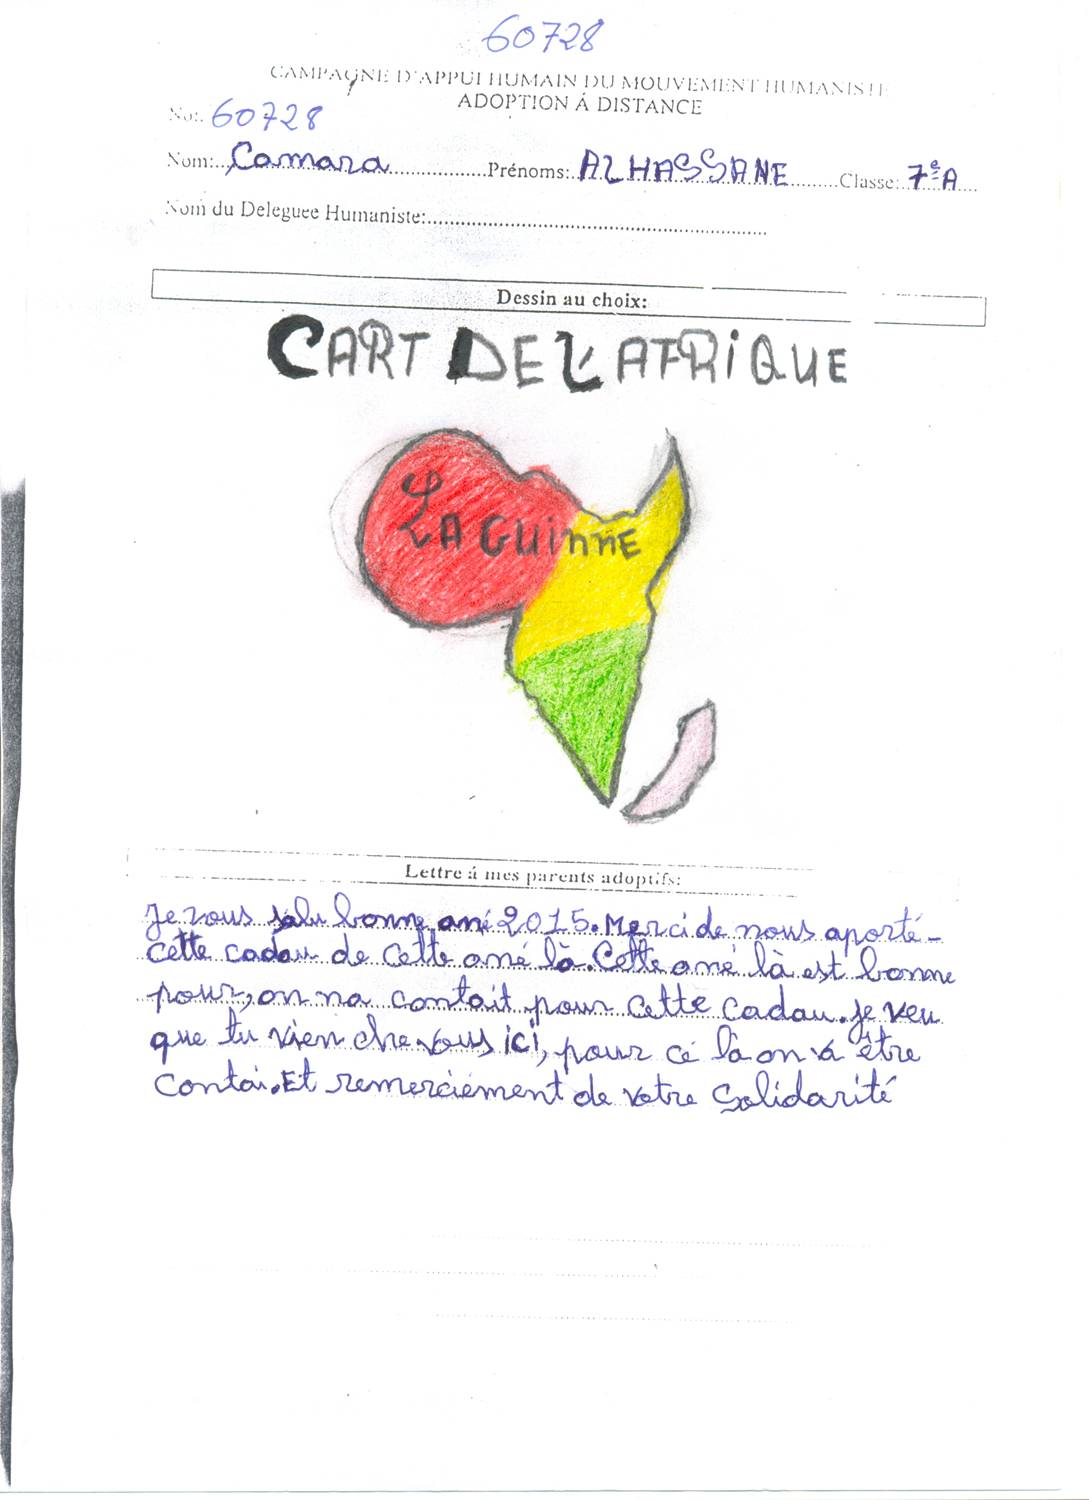 60728
CAMPAGNE D'APPUI HUMAIN DU MOUVEMENT HUMANISTE
ADOPTION Á DISTANCE
No:. 60728
Nom:..Camara..................Prénoms:.ALHASSANE........Classe:.7e A....
Nom du Deleguee Humaniste:..........................................................
Dessin au choix:
CART DE L'AFRIQUE
LA GUiNNE
Lettre á mes parents adoptifs:
Je vous salu bonne ané 2015. Merci de nous aporté-
cette cadau de cette ané là. Cette ané là est bonne
pour, on na contait pour cette cadau. je veu
que tu vien che vous ici, pour cé là on va être
contai. Et remerciement de votre Solidarité